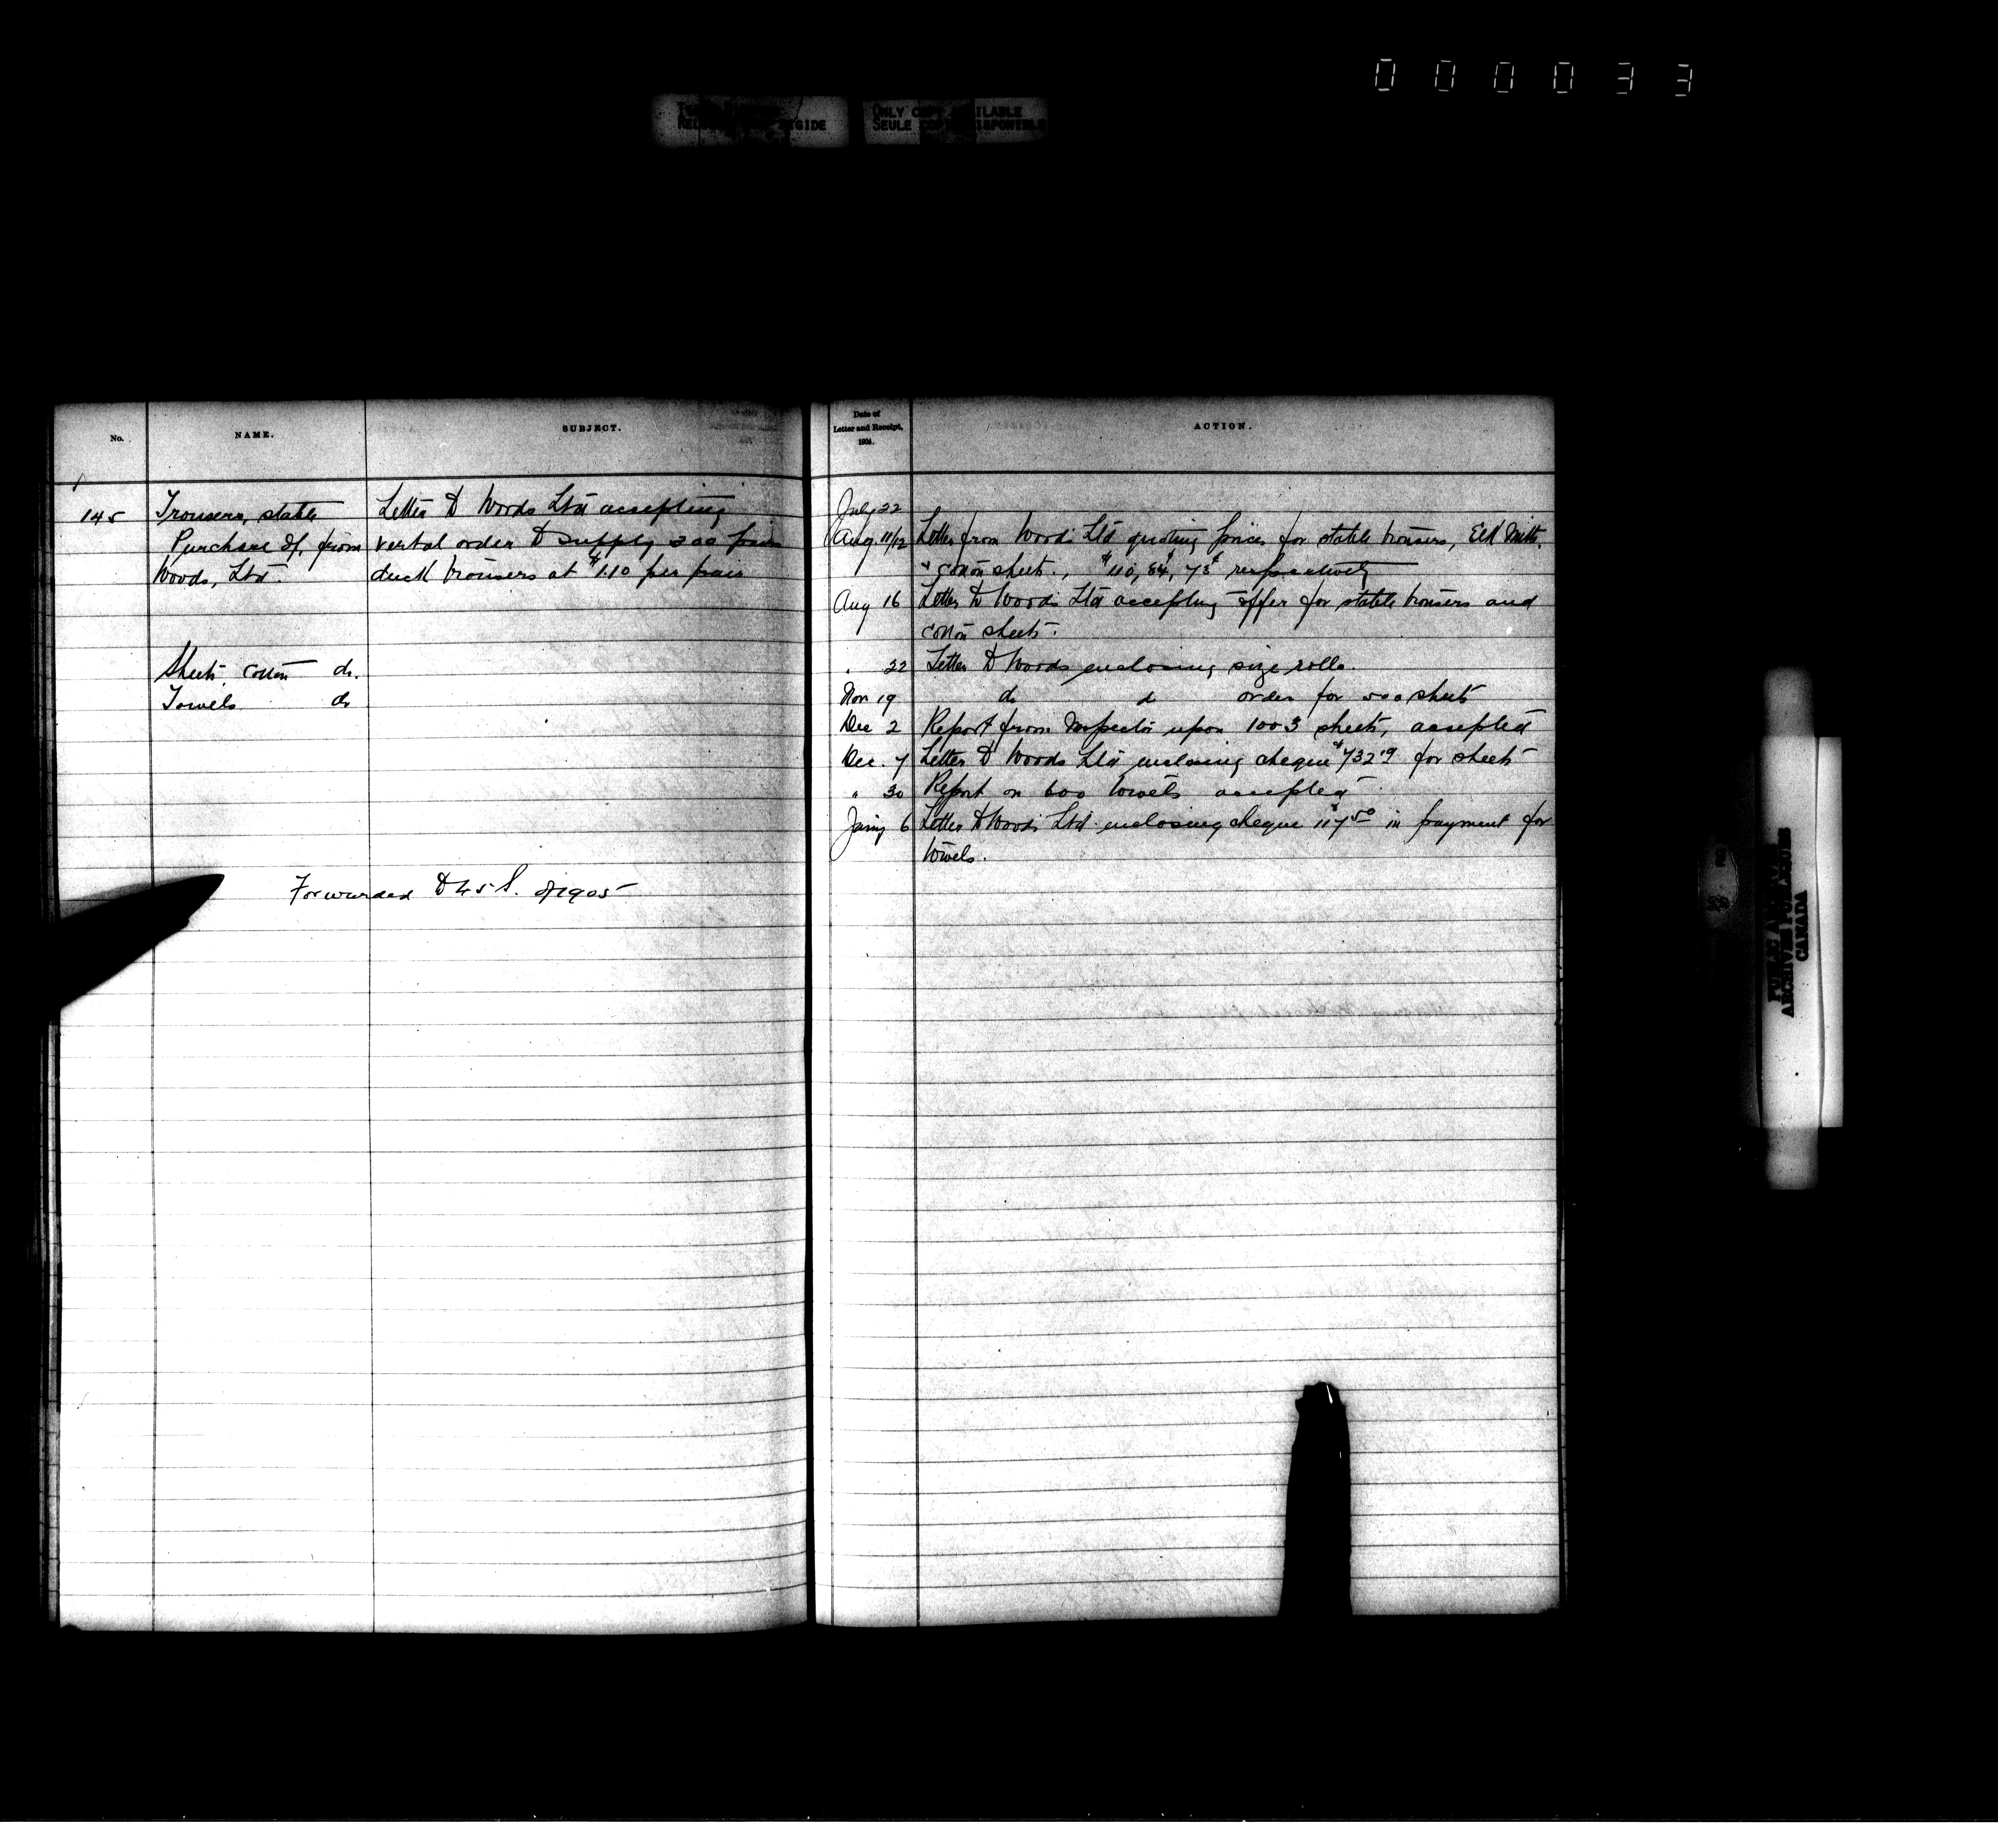 000033
ONLY COPY AVAILABLE
SEULE COPIE DISPONIBLE
No.
NAME.
SUBJECT.
Date of
Letter and Receipt,
1904.
ACTION.
145
Trousers, stable
Purchase of, from
Woods, Ltd.
Sheets, cotton do.
Towels do
Letter to Woods Ltd accepting
verbal order to supply 300 pairs
duck trousers at $1.10 per pair
Forwarded to 45 S. of 1905
July 22
Aug. 11/12 Letter from Woods Ltd quoting prices for stable trousers, Elk Mitts.
+ cotton sheets, $1.10, 84, 73¢ respectively
Aug 16 Letter to Woods Ltd accepting offer for stable trousers and
cotton sheets.
" 22 Letter to Woods enclosing size rolls.
Nov 19 do do order for 500 sheets
Dec 2 Report from Inspector upon 1003 sheets, accepted
Dec. 7 Letter to Woods Ltd enclosing cheque $732.19 for sheets
" 30 Report on 600 towels accepted
6 Letter to Woods Ltd. enclosing cheque $117.50 in payment for
towels.
PUBLIC ARCHIVES
ARCHIVES PUBLIQUES
CANADA